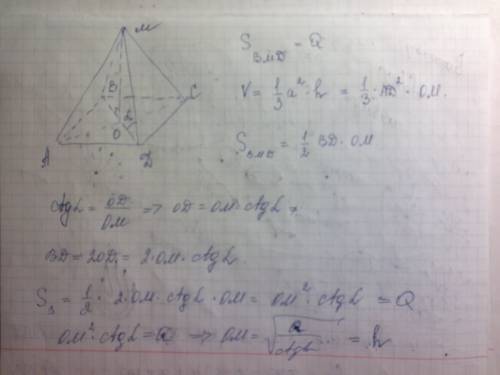 M
B
C
O
L
A
D
S BMD = Q
V = 1/3 a² · h = 1/3 · AD² · OM.
S BMD = 1/2 BD · OM
ctg L = OD/OM => OD = OM · ctg L
BD = 2OD = 2 · OM · ctg L
S = 1/2 · 2 · OM · ctg L · OM = OM² · ctg L = Q
OM² · ctg L = Q => OM = √(Q/ctg L) = h